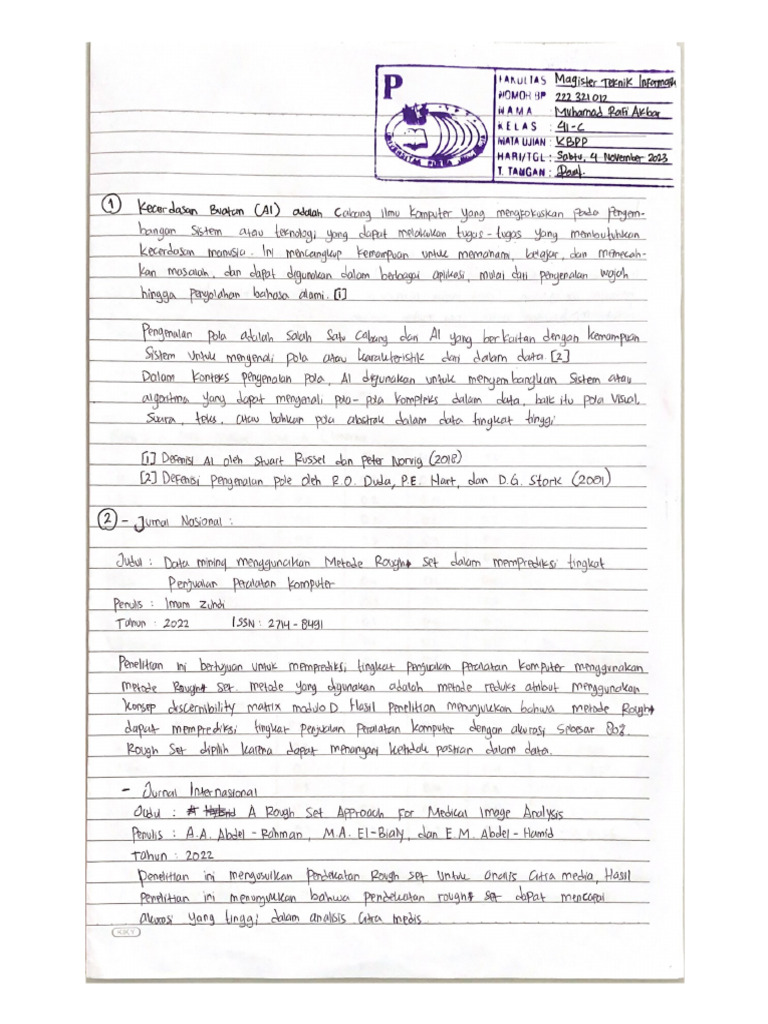 P
UNIVERSITAS PUTRA
FAKULTAS : Magister Teknik Informatika
NOMOR BP : 222 321 012
NAMA : Muhamad Rafi Akbar
KELAS : 41-C
MATA UJIAN : KBPP
HARI/TGL : Sabtu, 4 November 2023
T. TANGAN :
① Kecerdasan Buatan (AI) adalah Cabang ilmu komputer yang mengfokuskan pada pengem-
bangan sistem atau teknologi yang dapat melakukan tugas-tugas yang membutuhkan
kecerdasan manusia. Ini mencangkup kemampuan untuk memahami, belajar, dan memecah-
kan masalah, dan dapat digunakan dalam berbagai aplikasi, mulai dari pengenalan wajah
hingga pengolahan bahasa alami. [1]
Pengenalan pola adalah salah satu cabang dari AI yang berkaitan dengan kemampuan
Sistem untuk mengenali pola atau karakteristik dari dalam data [2]
Dalam konteks pengenalan pola, AI digunakan untuk mengembangkan sistem atau
algoritma yang dapat mengenali pola-pola kompleks dalam data, baik itu pola visual,
suara, teks, atau bahkan pola abstrak dalam data tingkat tinggi
[1] Defenisi AI oleh Stuart Russel dan Peter Norvig (2018)
[2] Defenisi Pengenalan pole oleh R.O. Duda, P.E. Hart, dan D.G. Stork (2001)
② - Jurnal Nasional :
Judul : Data mining menggunakan Metode Rough set dalam memprediksi tingkat
Penjualan Peralatan Komputer
Penulis : Imam Zuhdi
Tahun : 2022 ISSN : 2714-8491
Penelitian ini bertujuan untuk memprediksi tingkat penjualan peralatan komputer menggunakan
metode Rough set. metode yang digunakan adalah metode reduks atribut menggunakan
konsep discernibility matrix modulo D Hasil penelitian menunjukkan bahwa metode Rough
dapat memprediksi tingkat penjualan Peralatan komputer dengan akurasi sebesar 80%.
Rough Set dipilih karena dapat menangani ketidak pastian dalam data.
- Jurnal Internasional
Judul : A Rough Set Approach For Medical Image Analysis
Penulis : A.A. Abdel-Rahman, M.A. El-Bialy, dan E.M. Abdel-Hamid
Tahun : 2022
Penelitian ini mengusulkan Pendekatan Rough set untuk analis citra media, Hasil
penelitian ini menunjukkan bahwa pendekatan rough set dapat mencapai
akurasi yang tinggi dalam analisis citra medis.
KIKY